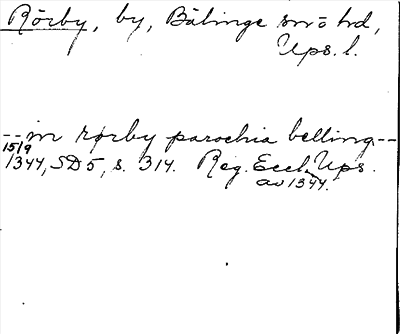 Rörby, by, Bälinge snö hd,
Ups. l.
--in rørby parochia belling--
15/9
1344, SD 5, s. 314. Reg. Eccl. Ups.
av 1344.